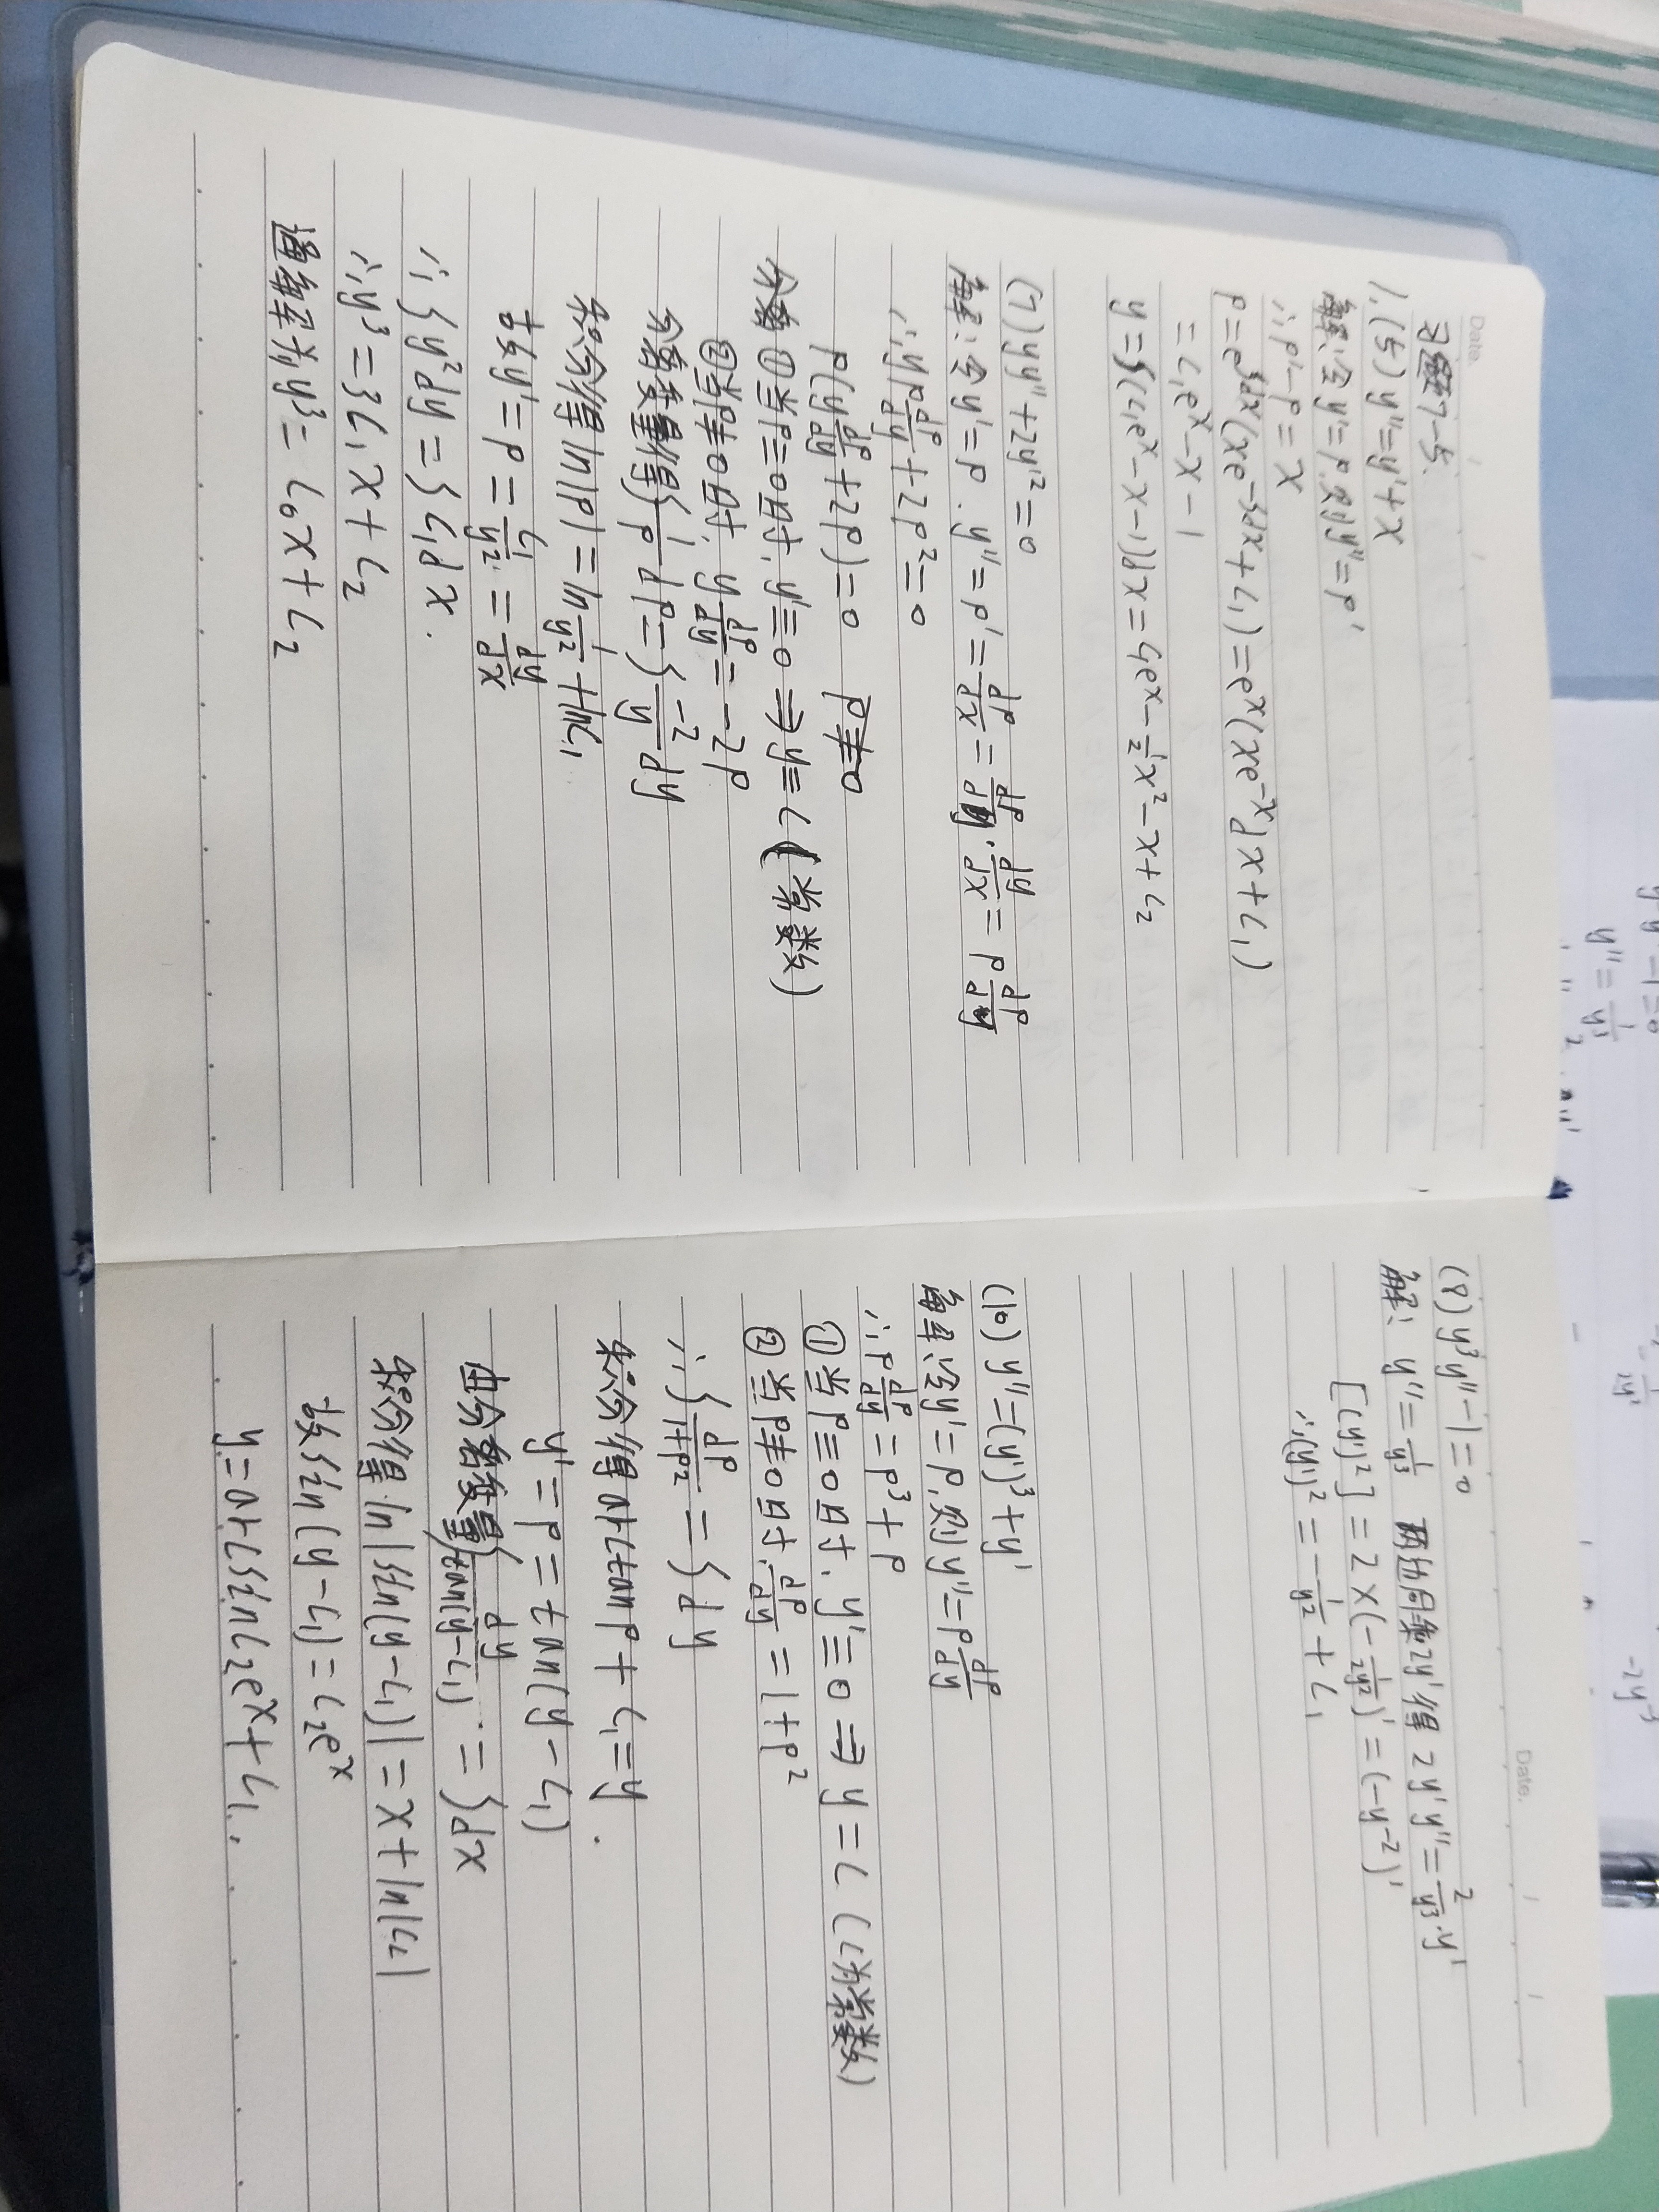 Date.
习题7-5.
1.(5) y''=y'+x
解:令y'=p.则y''=p'
∴p'-p=x
p=e^{∫dx}(xe^{-∫dx}+C₁)=e^x(xe^{-x}dx+C₁)
=C₁e^x-x-1
y=∫(C₁e^x-x-1)dx=C₁e^x-\frac{1}{2}x²-x+C₂
(7) yy''+2y'²=0
解:令y'=p. y''=p'=\frac{dp}{dx}=\frac{dp}{dy}·\frac{dy}{dx}=p\frac{dp}{dy}
∴yp\frac{dp}{dy}+2p²=0
p(y\frac{dp}{dy}+2p)=0 p≠0
①当p≡0时,y'≡0⇒y=C(常数)
②当p≠0时,y\frac{dp}{dy}=-2p
分离变量得∫\frac{1}{p}dp=∫\frac{-2}{y}dy
积分得ln|p|=ln\frac{1}{y²}+lnC₁
故y'=p=\frac{C₁}{y²}=\frac{dy}{dx}
∴∫y²dy=∫C₁dx.
∴y³=3C₁x+C₂
通解为y³=C₀x+C₂
Date.
(8) y³y''-1=0
解:y''=\frac{1}{y³} 两边同乘2y'得 2y'y''=\frac{2}{y³}·y'
[(y')²]=2×(-\frac{1}{2y²})'=(-y^{-2})'
∴(y')²=-\frac{1}{y²}+C₁
(10) y''=(y')³+y'
解:令y'=p,则y''=p\frac{dp}{dy}
∴p\frac{dp}{dy}=p³+p
①当p≡0时,y'≡0⇒y=C(C为常数)
②当p≠0时,\frac{dp}{dy}=1+p²
∴∫\frac{dp}{1+p²}=∫dy
积分得arctanp+C₁=y.
y'=p=tan(y-C₁)
由分离变量∫\frac{dy}{tan(y-C₁)}=∫dx
积分得ln|sin(y-C₁)|=x+ln|C₂|
故sin(y-C₁)=C₂e^x
y=arcsinC₂e^x+C₁.
y''=\frac{1}{y³}
-2y³